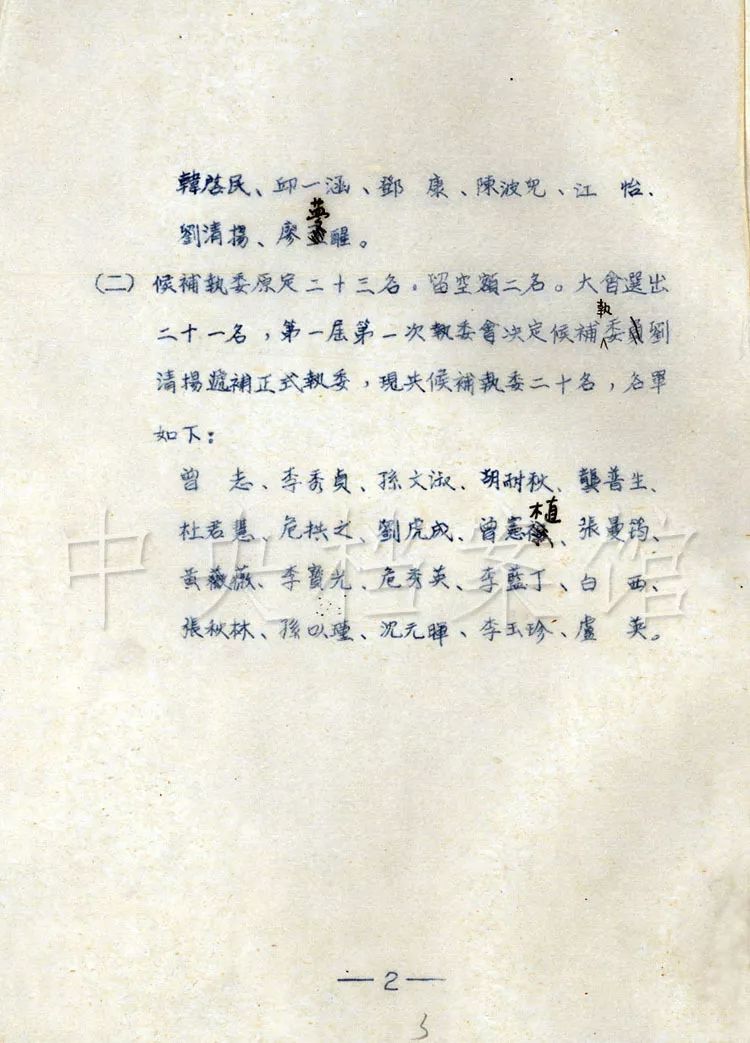 韓啓民、邱一涵、鄧 康、陳波兒、江 怡、
劉清揚、廖夢醒。
(二) 候補執委原定二十三名，留空額二名。大會選出
二十一名，第一屆第一次執委會決定候補執委劉
清揚遞補正式執委，現共候補執委二十名，名單
如下：
曾 志、李秀貞、孫文淑、胡耐秋、龔普生、
杜君慧、危拱之、劉虎成、曾憲植、張曼筠、
黃薇薇、李寶光、危秀英、李藍丁、白 西、
張秋林、孫以瑾、沈元暉、李玉珍、盧 英。
中央档案馆
—2—
3